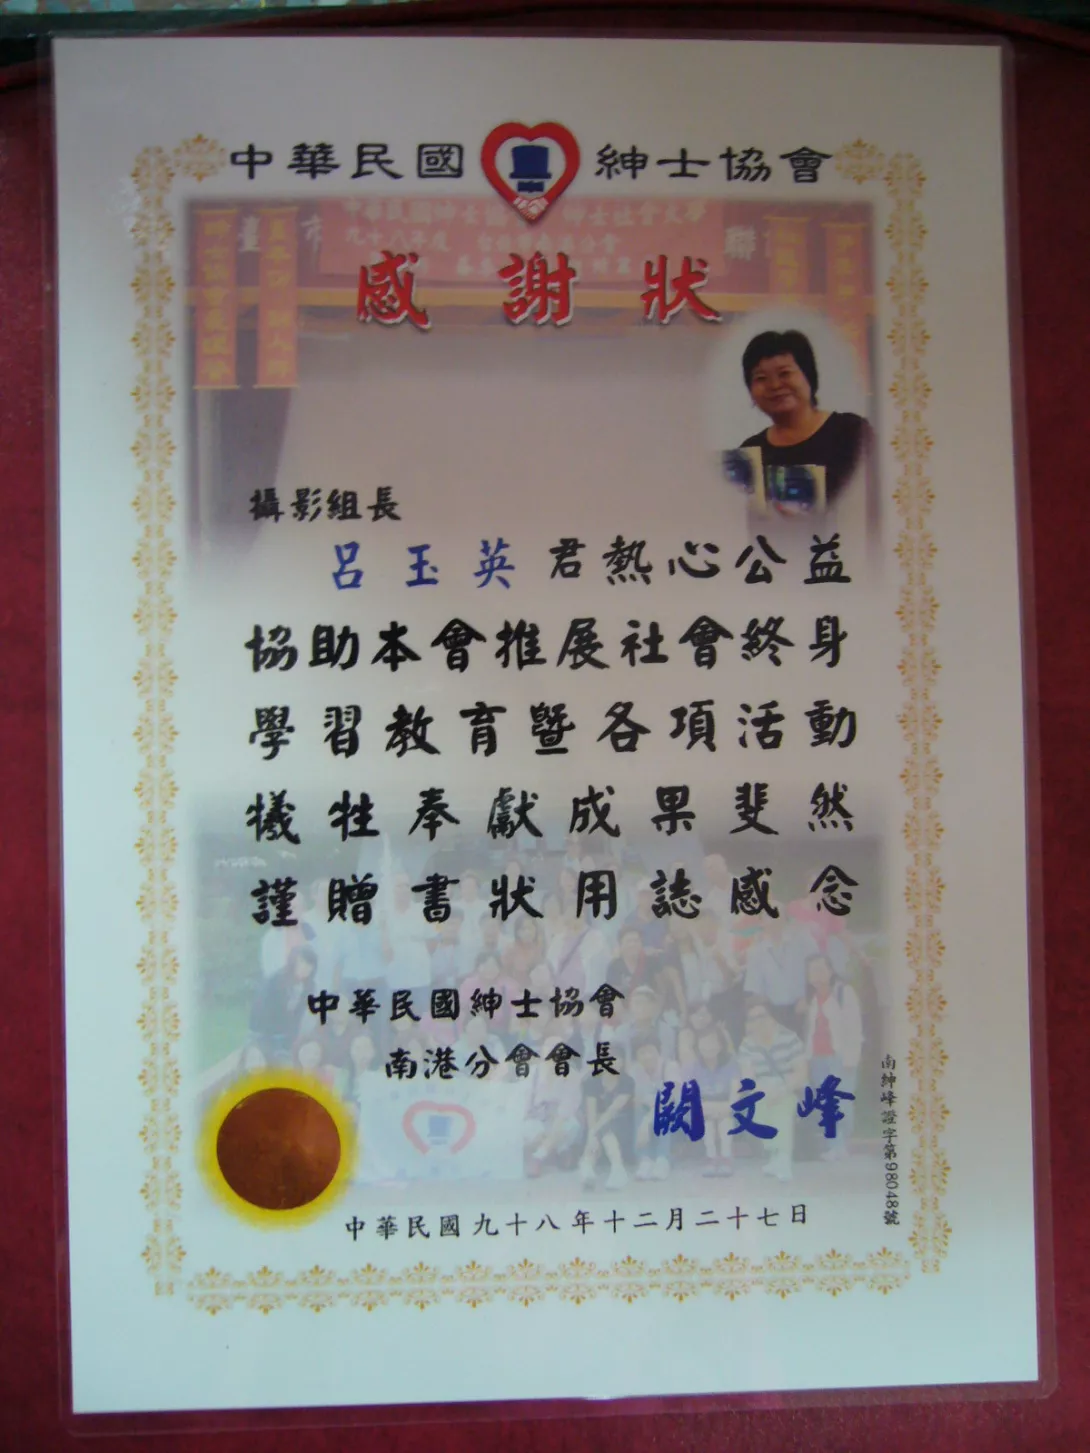 中華民國 紳士協會
感謝狀
攝影組長
呂玉英 君熱心公益
協助本會推展社會終身
學習教育暨各項活動
犧牲奉獻成果斐然
謹贈書狀用誌感念
中華民國紳士協會
南港分會會長
闕文峰
南紳峰證字第98048號
中華民國九十八年十二月二十七日